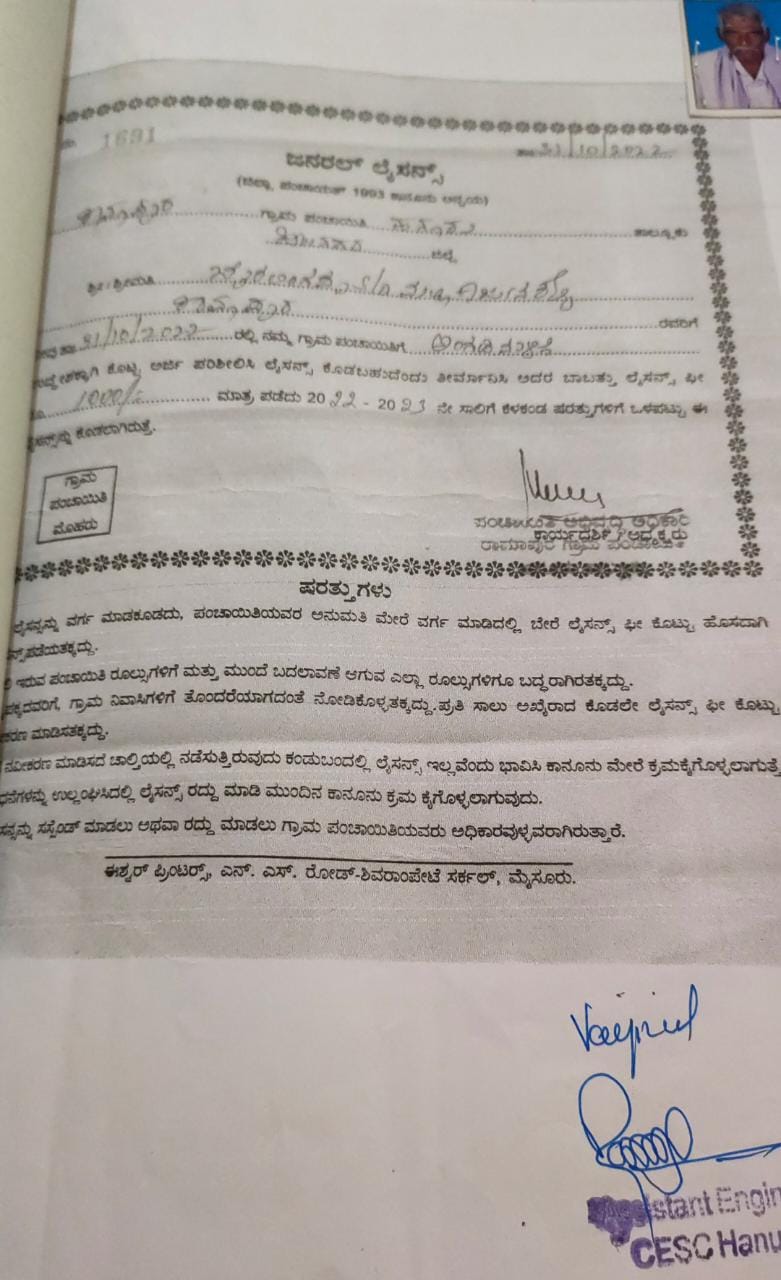 1691 ತಾ: 31/10/2022
ಜನರಲ್ ಲೈಸನ್ಸ್
(ಜಿಲ್ಲಾ ಪಂಚಾಯತ್ 1993 ಕಾನೂನು ಅನ್ವಯ)
ಗ್ರಾಮ ಪಂಚಾಯಿತಿ ತಾಲ್ಲೂಕು
ಜಿಲ್ಲೆ
ಶ್ರೀ/ಶ್ರೀಮತಿ
ರಾಮಾಪುರ ರವರಿಗೆ
31/10/2022 ರಲ್ಲಿ ನಮ್ಮ ಗ್ರಾಮ ಪಂಚಾಯಿತಿಗೆ ಅಂಗಡಿ ಮಳಿಗೆ
ಉದ್ದೇಶಕ್ಕಾಗಿ ಕೊಟ್ಟ ಅರ್ಜಿ ಪರಿಶೀಲಿಸಿ ಲೈಸನ್ಸ್ ಕೊಡಬಹುದೆಂದು ತೀರ್ಮಾನಿಸಿ ಅದರ ಬಾಬತ್ತು ಲೈಸನ್ಸ್ ಫೀ
ರೂ. 1000/- ಮಾತ್ರ ಪಡೆದು 2022 - 2023 ನೇ ಸಾಲಿಗೆ ಕೆಳಕಂಡ ಷರತ್ತುಗಳಿಗೆ ಒಳಪಟ್ಟು ಈ
ಲೈಸನ್ಸನ್ನು ಕೊಡಲಾಗಿರುತ್ತೆ.
ಗ್ರಾಮ
ಪಂಚಾಯಿತಿ
ಮೊಹರು
ಪಂಚಾಯಿತಿ ಅಭಿವೃದ್ಧಿ ಅಧಿಕಾರಿ
ಕಾರ್ಯದರ್ಶಿ / ಅಧ್ಯಕ್ಷರು
ರಾಮಾಪುರ ಗ್ರಾಮ ಪಂಚಾಯಿತಿ
ಷರತ್ತುಗಳು
ಲೈಸನ್ಸನ್ನು ವರ್ಗ ಮಾಡಕೂಡದು, ಪಂಚಾಯಿತಿಯವರ ಅನುಮತಿ ಮೇರೆ ವರ್ಗ ಮಾಡಿದಲ್ಲಿ ಬೇರೆ ಲೈಸನ್ಸ್ ಫೀ ಕೊಟ್ಟು ಹೊಸದಾಗಿ
ನ್ಸ್‌ಪಡೆಯತಕ್ಕದ್ದು.
ಇರುವ ಪಂಚಾಯಿತಿ ರೂಲ್ಸುಗಳಿಗೆ ಮತ್ತು ಮುಂದೆ ಬದಲಾವಣೆ ಆಗುವ ಎಲ್ಲಾ ರೂಲ್ಸುಗಳಿಗೂ ಬದ್ಧರಾಗಿರತಕ್ಕದ್ದು.
ಪಕ್ಕದವರಿಗೆ, ಗ್ರಾಮ ನಿವಾಸಿಗಳಿಗೆ ತೊಂದರೆಯಾಗದಂತೆ ನೋಡಿಕೊಳ್ಳತಕ್ಕದ್ದು.ಪ್ರತಿ ಸಾಲು ಅಖೈರಾದ ಕೊಡಲೇ ಲೈಸನ್ಸ್ ಫೀ ಕೊಟ್ಟು
ಕರಣ ಮಾಡಿಸತಕ್ಕದ್ದು.
ನವೀಕರಣ ಮಾಡಿಸದೆ ಚಾಲ್ತಿಯಲ್ಲಿ ನಡೆಸುತ್ತಿರುವುದು ಕಂಡುಬಂದಲ್ಲಿ ಲೈಸನ್ಸ್ ಇಲ್ಲವೆಂದು ಭಾವಿಸಿ ಕಾನೂನು ಮೇರೆ ಕ್ರಮಕೈಗೊಳ್ಳಲಾಗುತ್ತೆ
ಧನೆಗಳನ್ನು ಉಲ್ಲಂಘಿಸಿದಲ್ಲಿ ಲೈಸನ್ಸ್ ರದ್ದು ಮಾಡಿ ಮುಂದಿನ ಕಾನೂನು ಕ್ರಮ ಕೈಗೊಳ್ಳಲಾಗುವುದು.
ಸನ್ಸನ್ನು ಸಸ್ಪೆಂಡ್ ಮಾಡಲು ಅಥವಾ ರದ್ದು ಮಾಡಲು ಗ್ರಾಮ ಪಂಚಾಯಿತಿಯವರು ಅಧಿಕಾರವುಳ್ಳವರಾಗಿರುತ್ತಾರೆ.
ಈಶ್ವರ್ ಪ್ರಿಂಟರ್ಸ್, ಎನ್. ಎಸ್. ರೋಡ್-ಶಿವರಾಂಪೇಟೆ ಸರ್ಕಲ್, ಮೈಸೂರು.
Assistant Engin
CESC Hanu